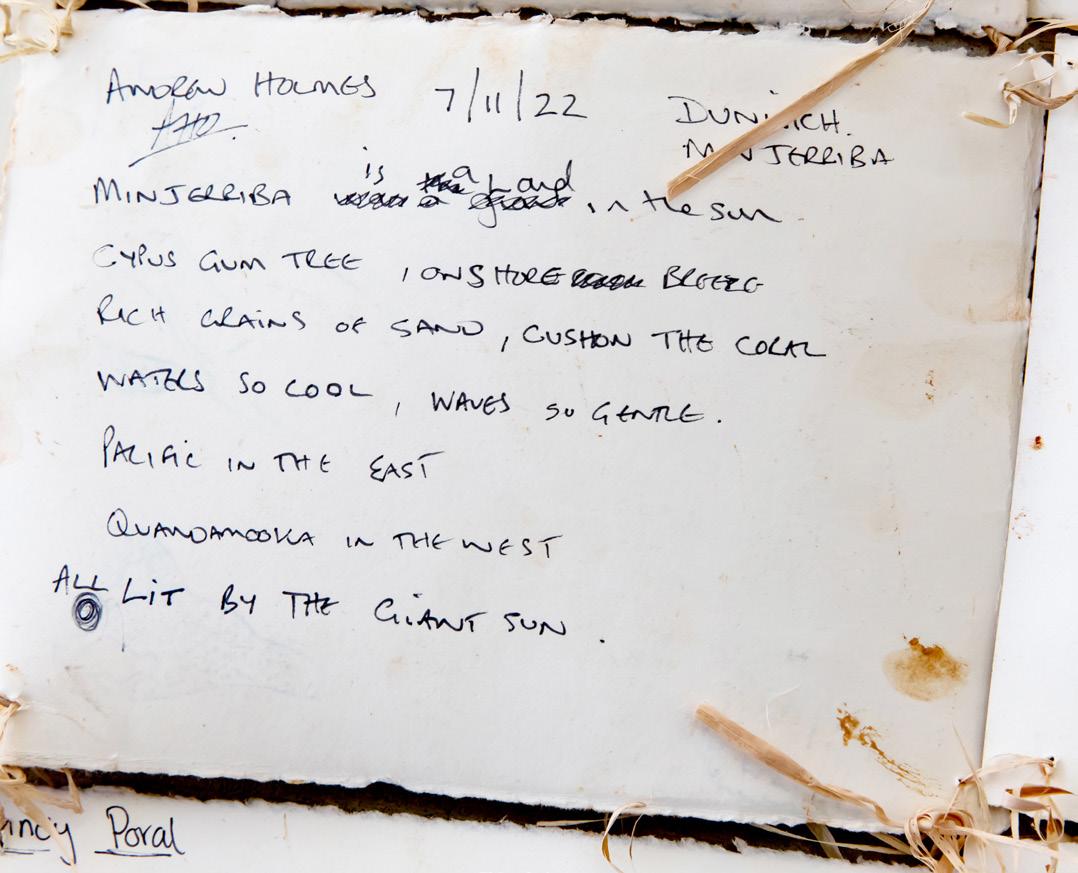 ANDREW HOLMES 7/11/22 DUNWICH.
MINJERRIBA
MINJERRIBA is a Land in the sun
CYPUS GUM TREE , ONSHORE BREEZE
RICH GRAINS OF SAND , CUSHON THE CORAL
WATERS SO COOL , WAVES SO GENTLE .
PACIFIC IN THE EAST
QUANDAMOOKA IN THE WEST
ALL LIT BY THE GIANT SUN .
Poral